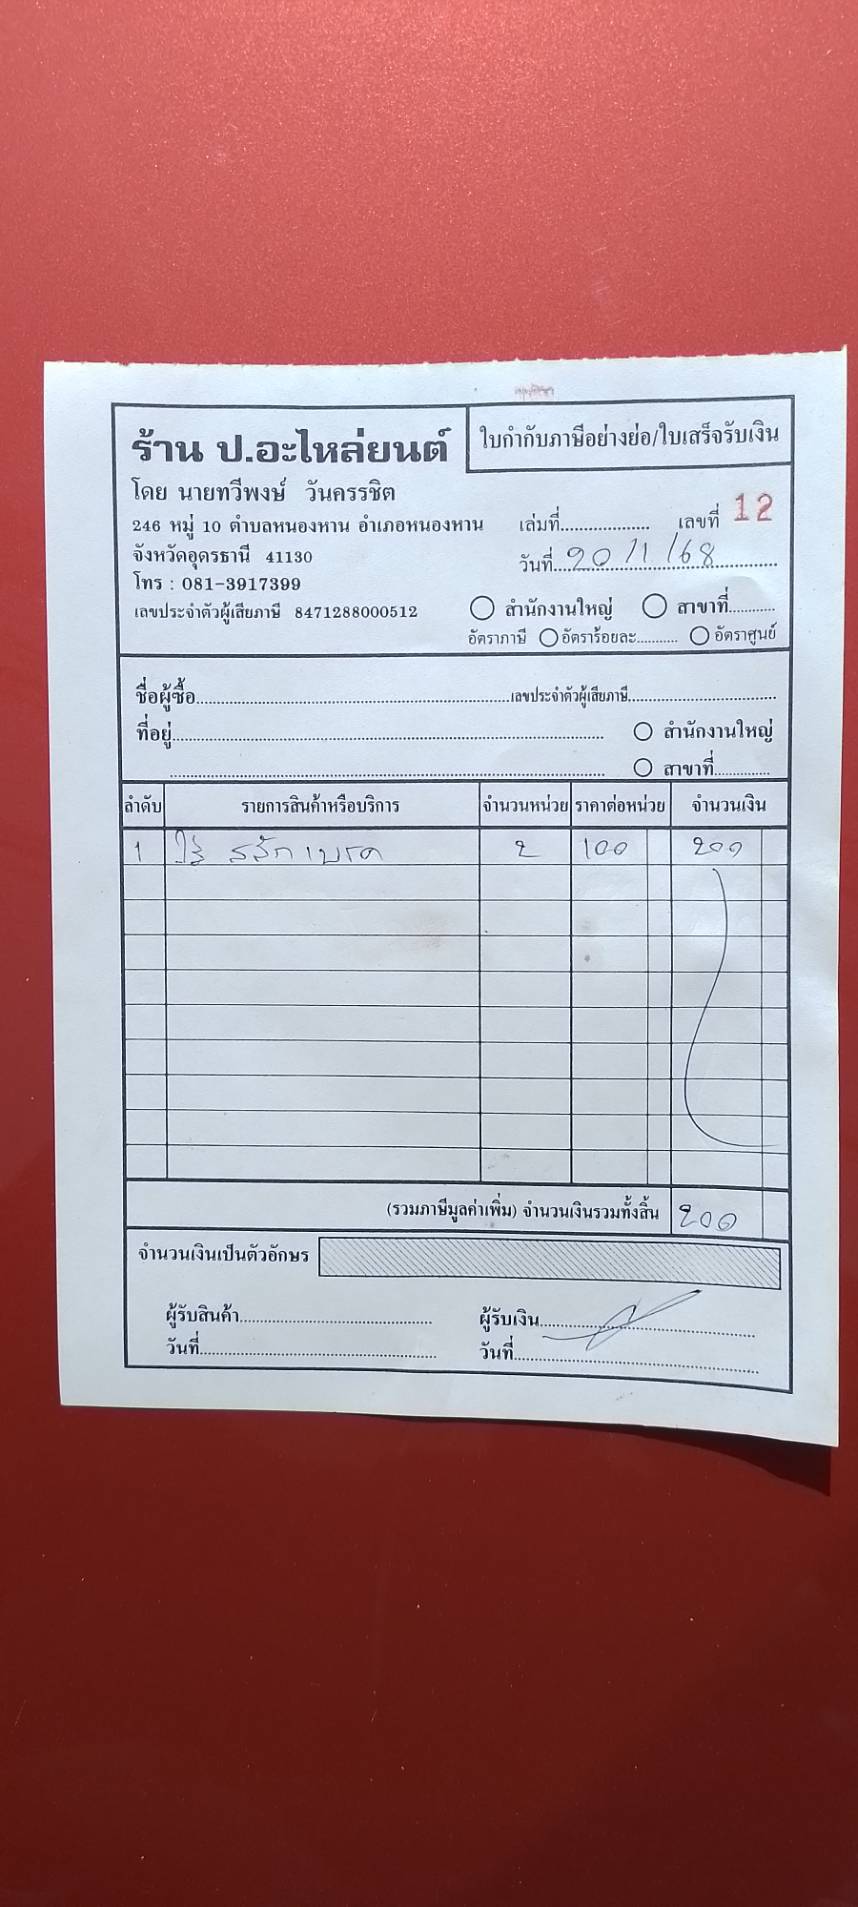 ร้าน ป.อะไหล่ยนต์
ใบกำกับภาษีอย่างย่อ/ใบเสร็จรับเงิน
โดย นายทวีพงษ์ วันครรชิต
246 หมู่ 10 ตำบลหนองหาน อำเภอหนองหาน
เล่มที่.................... เลขที่ 12
จังหวัดอุดรธานี 41130
วันที่ 20/1/68
โทร : 081-3917399
เลขประจำตัวผู้เสียภาษี 8471288000512
สำนักงานใหญ่ สาขาที่...........
อัตราภาษี อัตราร้อยละ........... อัตราศูนย์
ชื่อผู้ซื้อ.................... เลขประจำตัวผู้เสียภาษี....................
ที่อยู่.................... สำนักงานใหญ่
สาขาที่..............
ลำดับ รายการสินค้าหรือบริการ จำนวนหน่วย ราคาต่อหน่วย จำนวนเงิน
1 เบรค 2 100 200
(รวมภาษีมูลค่าเพิ่ม) จำนวนเงินรวมทั้งสิ้น 200
จำนวนเงินเป็นตัวอักษร
ผู้รับสินค้า.................... ผู้รับเงิน....................
วันที่.................... วันที่....................